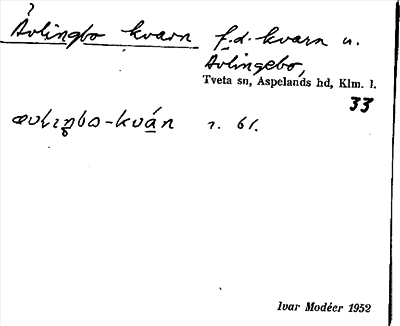 Åvlingbo kvarn f.d. kvarn u.
Åvlingebo,
Tveta sn, Aspelands hd, Klm. l.
33
-kván r. 61.
Ivar Modéer 1952